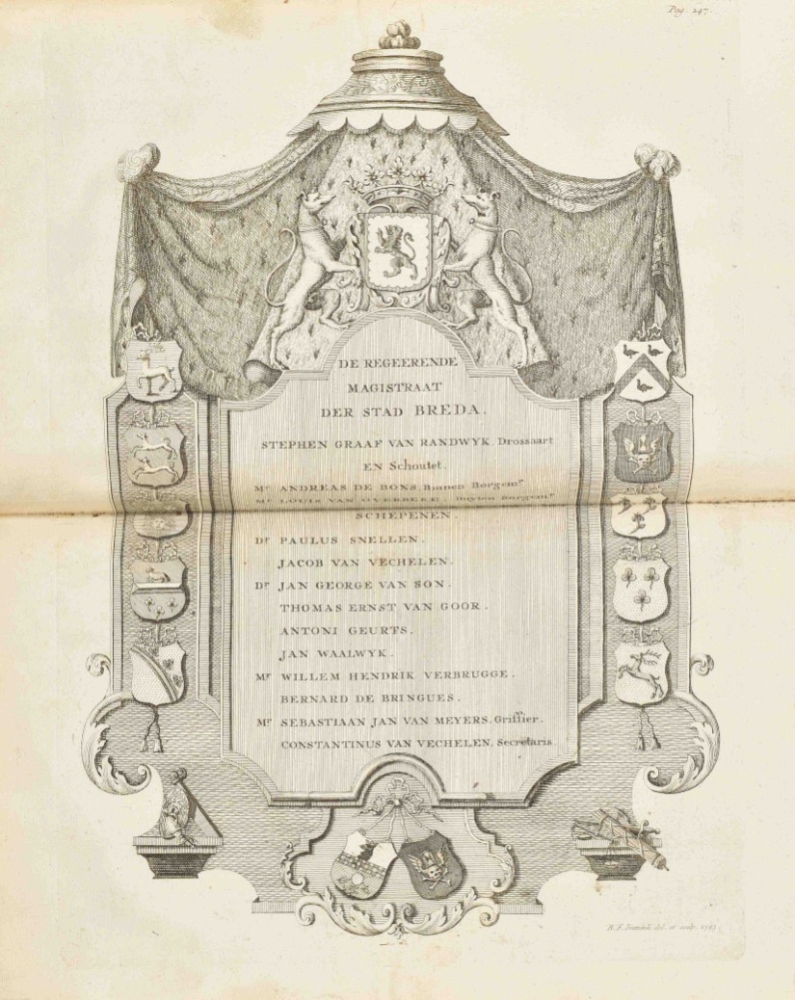 Pag. 247.
DE REGEERENDE
MAGISTRAAT
DER STAD BREDA.
STEPHEN GRAAF VAN RANDWYK, Drossaart
EN Schoutet.
Mr ANDREAS DE BONS, Binnen Borgemr
Mr LOUIS VAN OVERBEKE, Buyten Borgemr
SCHEPENEN.
Dr PAULUS SNELLEN.
JACOB VAN VECHELEN.
Dr JAN GEORGE VAN SON.
THOMAS ERNST VAN GOOR.
ANTONI GEURTS.
JAN WAALWYK.
Mr WILLEM HENDRIK VERBRUGGE.
BERNARD DE BRINGUES.
Mr SEBASTIAAN JAN VAN MEYERS, Griffier.
CONSTANTINUS VAN VECHELEN, Secretaris.
del. et sculp.